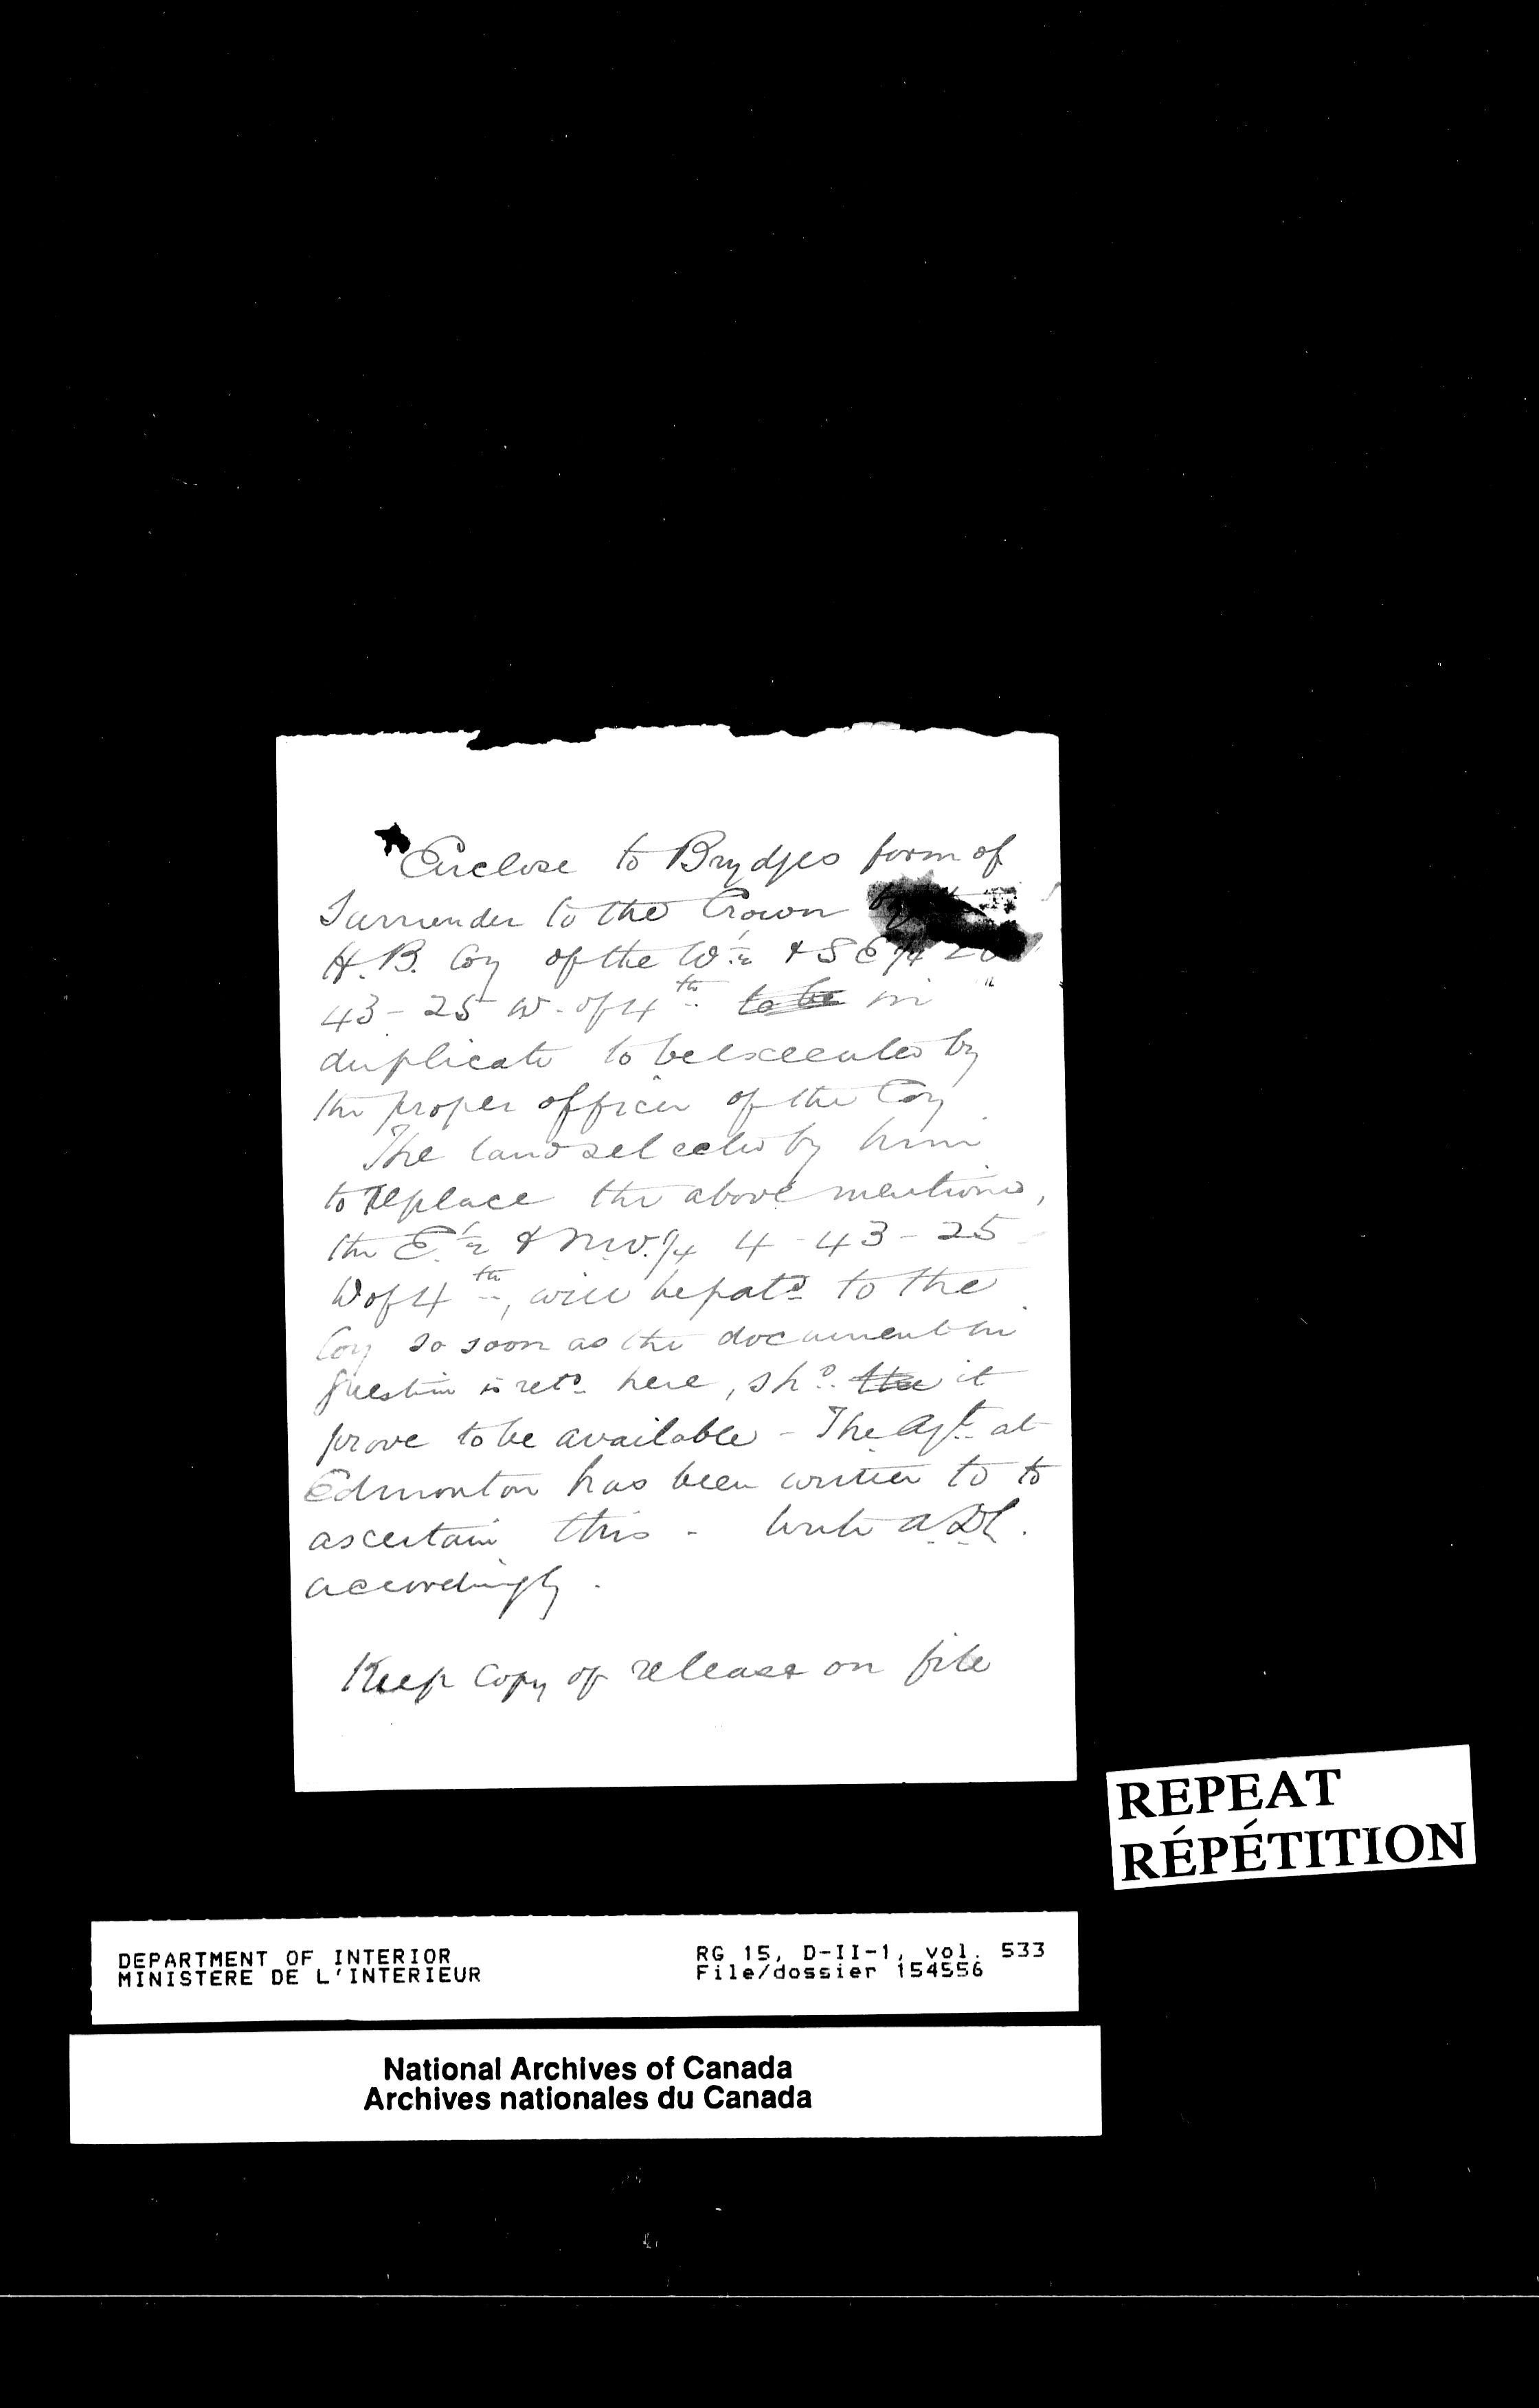 Enclose to Brydges form of
Surrender to the Crown by
H.B. Coy of the W ½ & S E ¼
43 - 25 W. of 4th to be in
duplicate to be executed by
the proper officer of the Coy
The land selected by him
to replace the above mentioned,
the E. ½ & N.W. ¼ 4 - 43 - 25
W of 4th, will be patd to the
Coy so soon as the document in
question is retd here, shd. the it
prove to be available - The Agt. at
Edmonton has been written to to
ascertain this - Write
accordingly.
Keep copy of release on file
REPEAT
RÉPÉTITION
DEPARTMENT OF INTERIOR
MINISTERE DE L'INTERIEUR
RG 15, D-II-1, vol. 533
File/dossier 154556
National Archives of Canada
Archives nationales du Canada